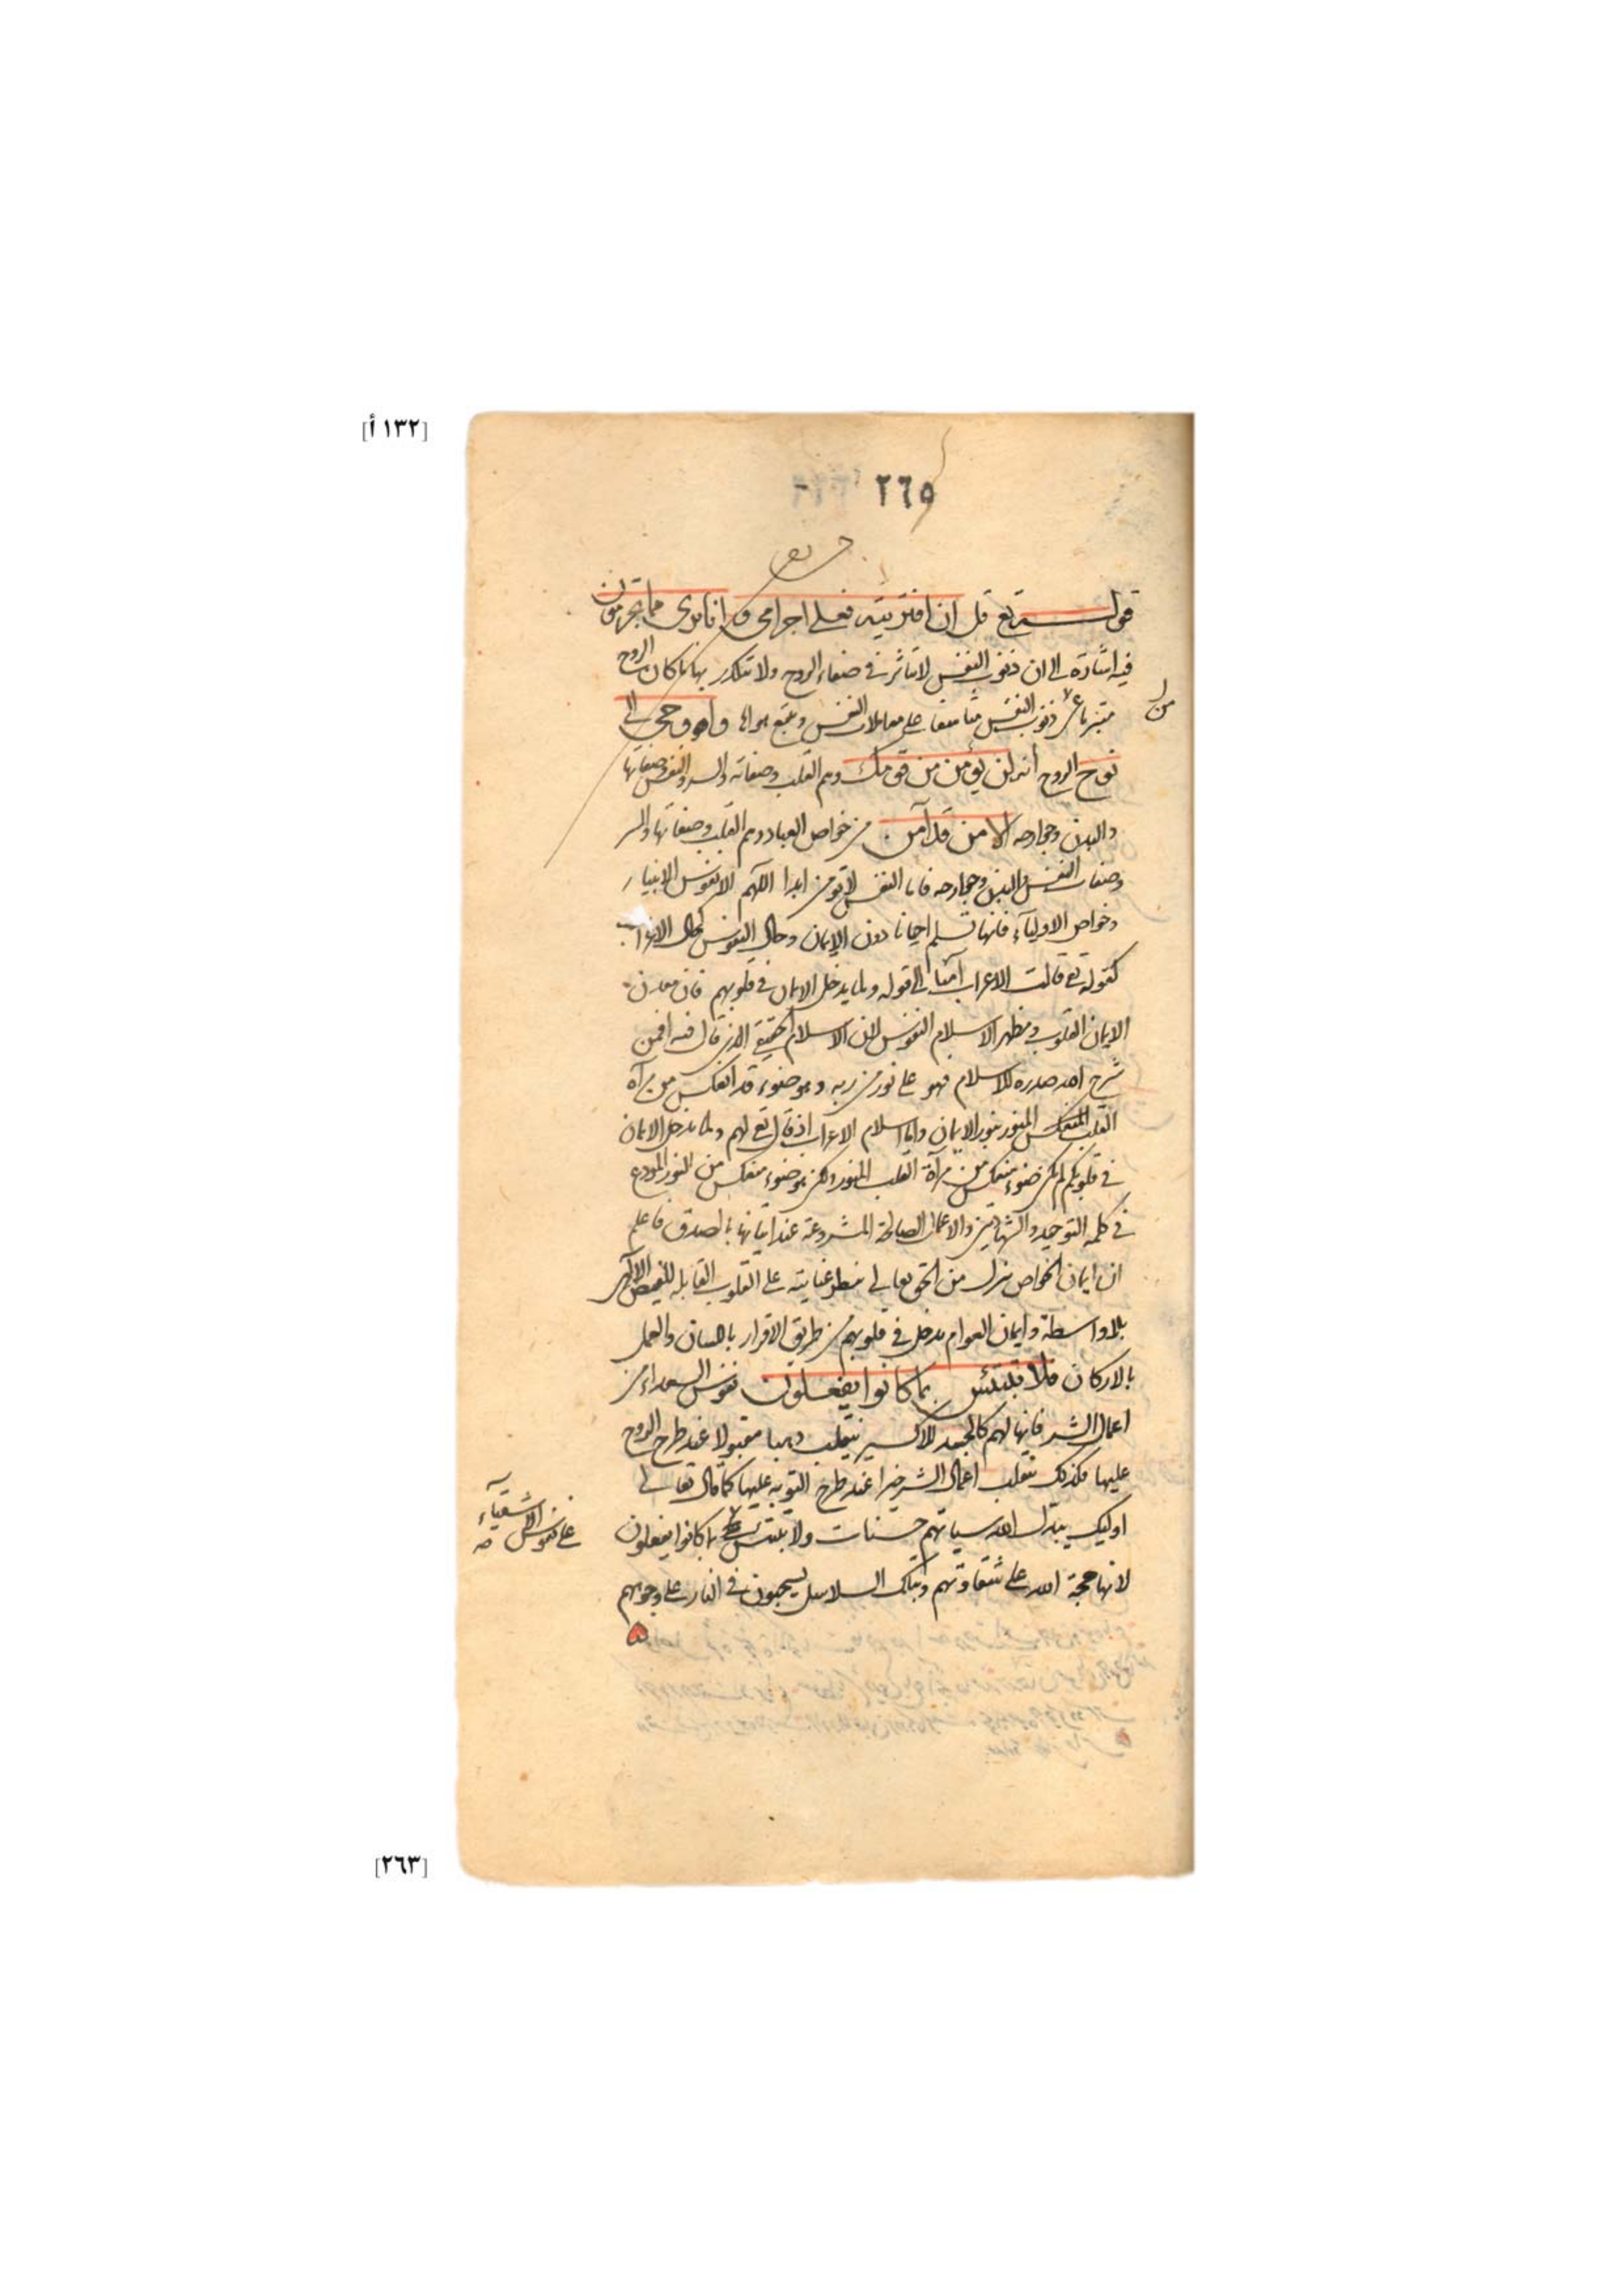 [١٣٢ أ]
٢٦٥
قوله تع قل ان افتريته فعلي اجرامي وانا بري مما تجرمون
فيه اشارة الى ان ذنوب النفس لا تتاثر في صفاء الروح ولا تتكدر بها ما كان الروح
من
متبريا عن ذنوب النفس متاسفا على معاملات النفس وتتبع هواها واوحي الى
نوح الروح انه لن يؤمن من قومك وهم القلب وصفاته والسر والنفس وصفاتها
والبدن وجوارحه الا من قد آمن من خواص العباد وهم القلب وصفاتها والسر
وصفات النفس والبدن وجوارحه فاما النفس لا تومن ابدا اللهم الا نفوس الانبياء
وخواص الاولياء فانها تسلم احيانا دون الايمان وحال النفوس كحال الاعراب
كقوله تع قالت الاعراب آمنا الى قوله ولما يدخل الايمان في قلوبهم فان معدن
الايمان القلوب ومظهر الاسلام النفوس لان الاسلام الحقيقي الذي قال فيه افمن
شرح الله صدره للاسلام فهو على نور من ربه وهو ضوء قد انعكس من مرآة
القلب المنعكس المنور بنور الايمان واما اسلام الاعراب اذ قال تع لهم ولما يدخل الايمان
في قلوبكم لم يكن ضوء منعكس من مرآة القلب المنور ولكن هو ضوء منعكس من النور المودع
في كلمة التوحيد والشهادتين والاعمال الصالحة المشروعة عند اتيانها بالصدق فاعلم
ان ايمان الخواص ينزل من الحق تعالى بنظر عنايته على القلوب القابلة للفيض الالهي
بلا واسطة وايمان العوام يدخل في قلوبهم من طريق الاقرار باللسان والعمل
بالاركان فلا تبتئس بما كانوا يفعلون نفوس السعداء من
اعمال الشر فانها لهم كالجسد للاكسير ينقلب ذهبا مقبولا عند طرح الروح
عليها فكذلك تنقلب اعمال الشر خيرا عند طرح التوبة عليها كما قال تعالى
اوليك يبدل الله سياتهم حسنات ولا تبتئس بما كانوا يفعلون
على نفوس الاشقياء
لانها حجة الله على شقاوتهم وبتلك السلاسل يسحبون في النار على وجوههم
[٢٦٣]